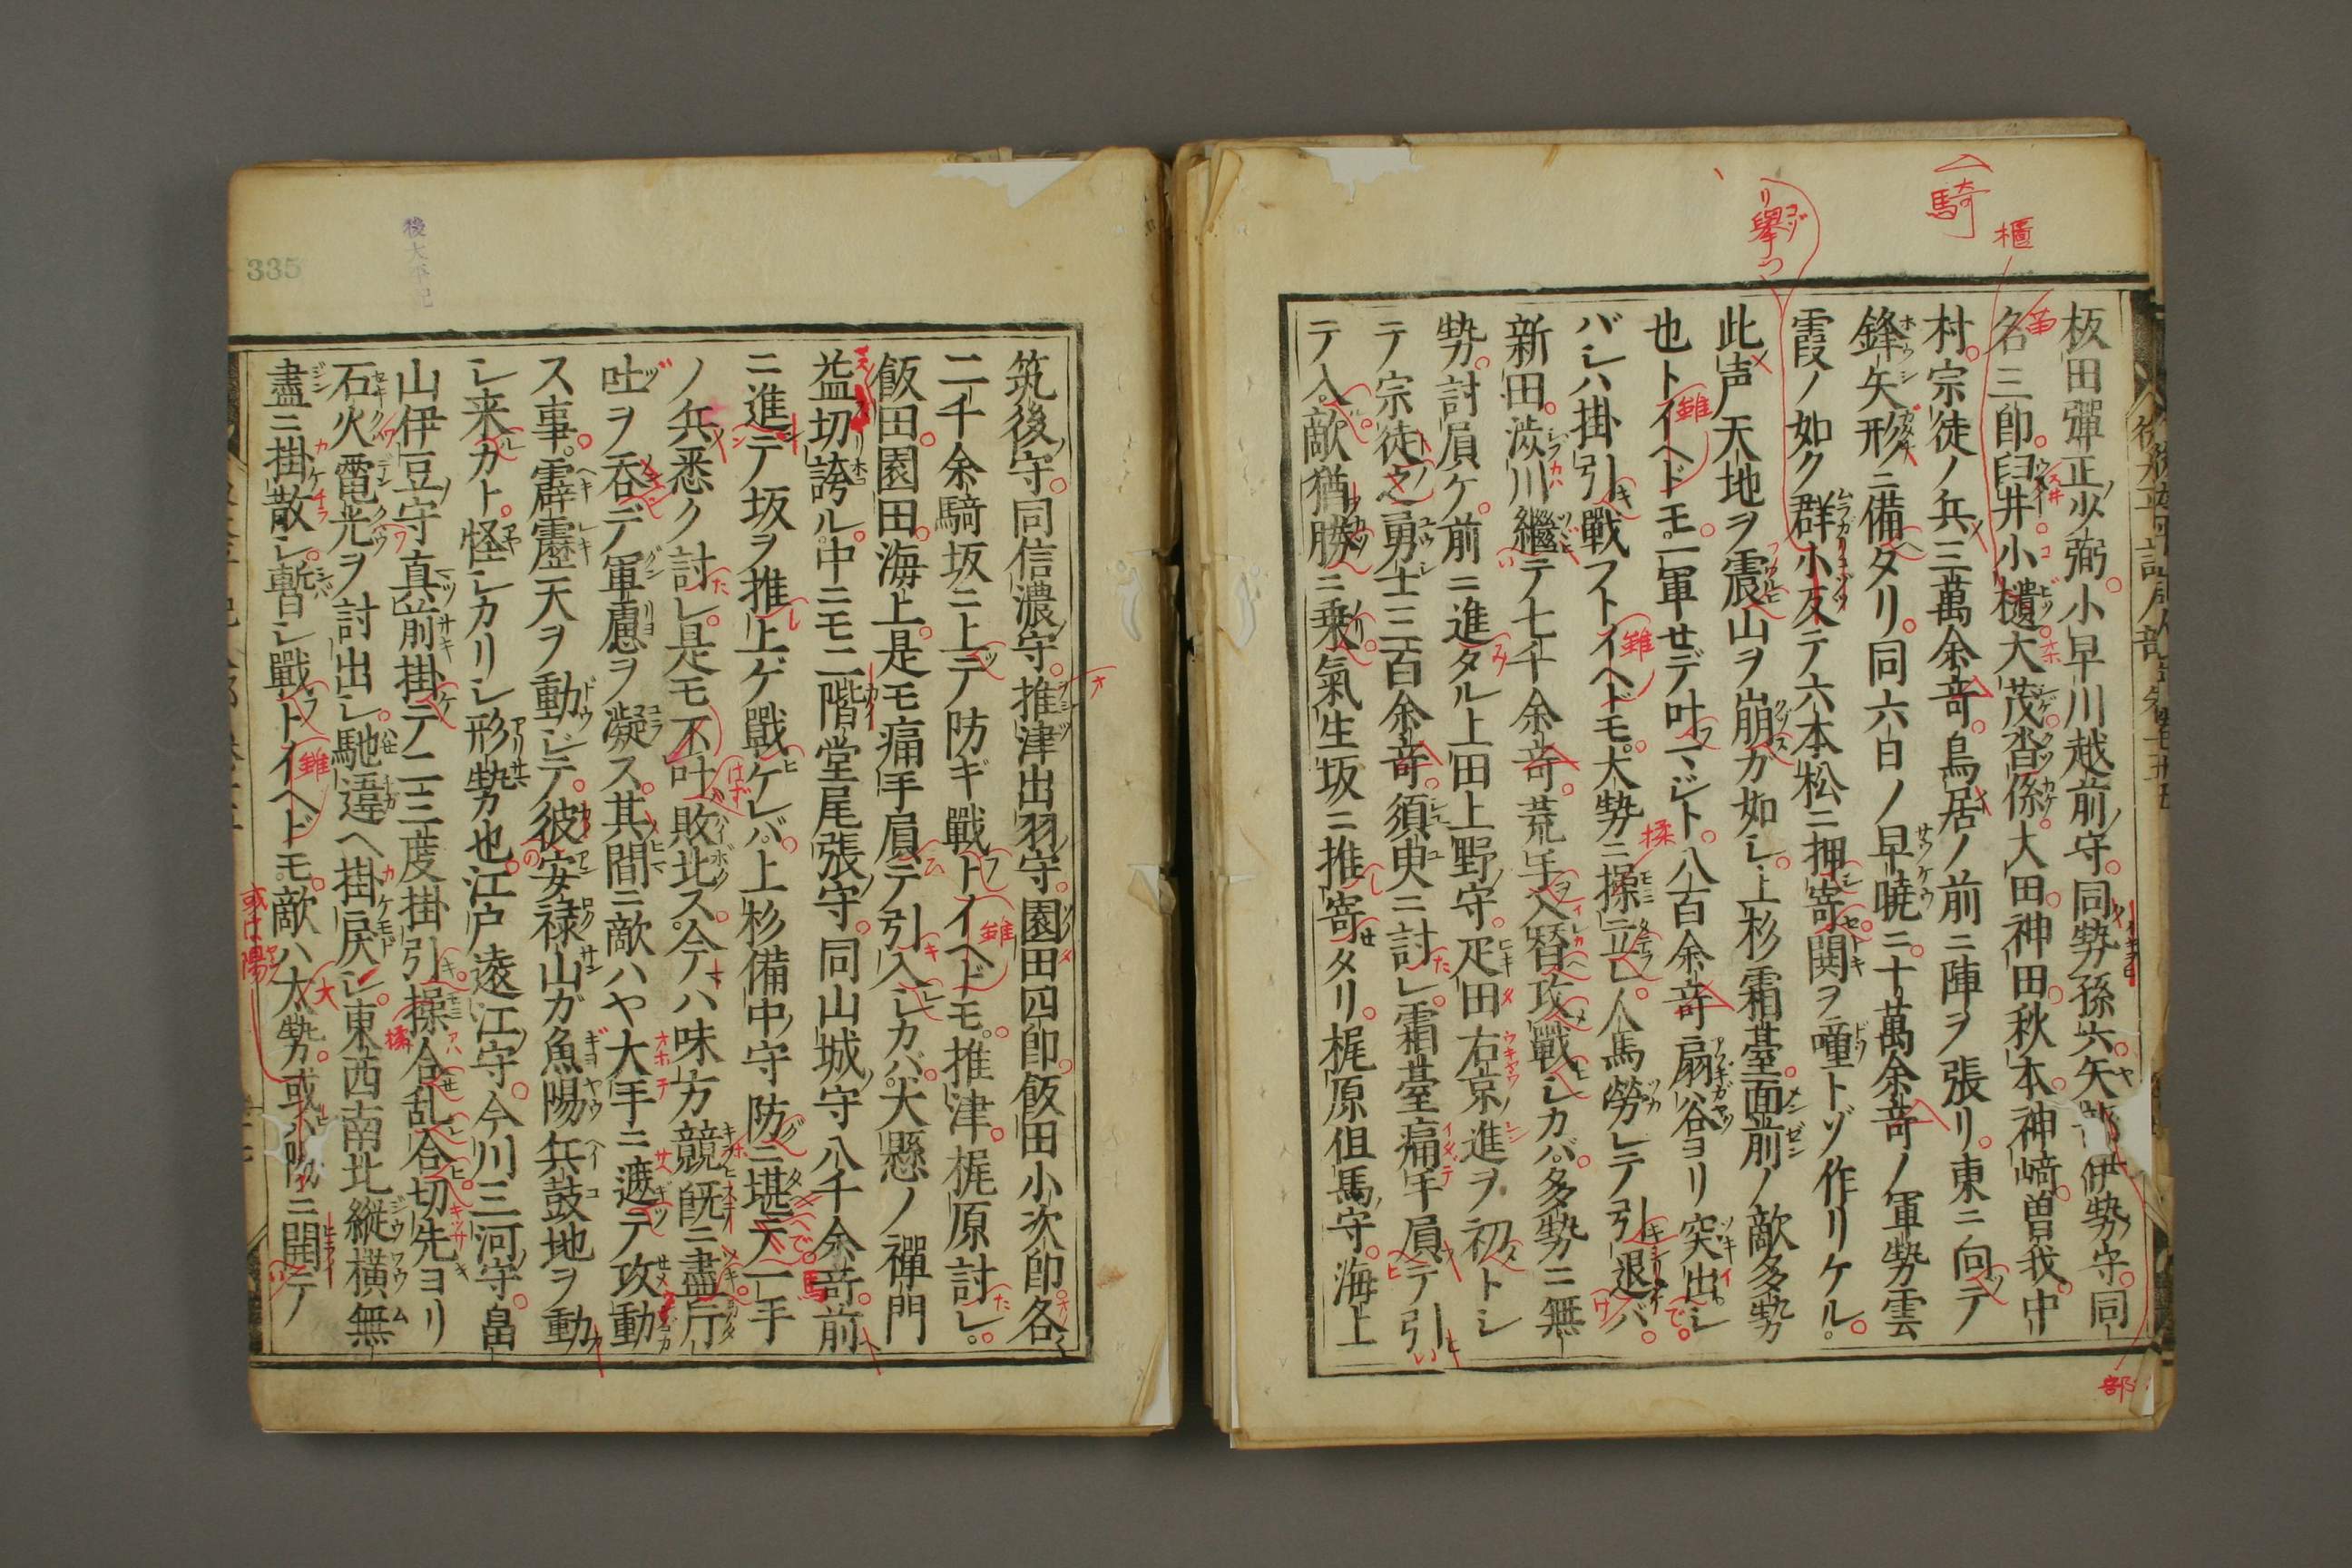 騎
櫃
擧つ
板田彈正少弼小早川越前守同勢孫六矢部伊勢守同
名三郎臼井小櫃大茂沓係大田神田秋本神﨑曽我中
村宗徒ノ兵三萬余竒鳥居ノ前ニ陣ヲ張リ東ニ向テ
鋒矢形ニ備タリ同六日ノ早曉ニ十萬余竒ノ軍勢雲
霞ノ如ク群小反テ六本松ニ押寄鬨ヲ噇トゾ作リケル
此声天地ヲ震山ヲ崩ガ如シ上杉霜臺面前ノ敵多勢
也トイヘドモ一軍セデ叶マジト八百余竒扇谷ヨリ突出シ
バシハ掛引戰フトイヘドモ大勢ニ操立ラ人馬勞レテ引退バ
新田澁川繼テ七千余竒荒手入替攻戰シカバ多勢ニ無
勢討屓ケ前ニ進タル上田上野守疋田右京進ヲ初トシ
テ宗徒之勇士三百余竒須臾ニ討レ霜臺痛手屓テ引
テ入敵猶勝ニ乗氣生坂ニ推寄タリ梶原但馬守海上
部
後太平記
335
筑後守同信濃守推津出羽守園田四郎飯田小次郎各
二千余騎坂ニ上テ防ギ戰トイヘドモ推津梶原討レ
飯田園田海上是モ痛手屓テ引入シカバ犬懸ノ禪門
益切誇ル中ニモ二階堂尾張守同山城守八千余竒前
ニ進テ坂ヲ推上ゲ戰ケレバ上杉備中守防ニ堪テ一手
ノ兵悉ク討レ是モ不叶敗北ス今ハ味方競既ニ盡斤
吐ヲ呑デ軍慮ヲ凝ス其間ニ敵ハヤ大手ニ遮テ攻動
ス事霹靂天ヲ動ジテ彼安禄山ガ魚陽兵鼓地ヲ動
シ来カト怪シカリシ形勢也江戸遠江守今川三河守畠
山伊豆守真前掛テ二三度掛引操合乱合切先ヨリ
石火電光ヲ討出シ馳違ヘ掛戻シ東西南北縱横無
盡ニ掛散シ暫シ戰トイヘドモ敵ハ大勢或ハ陽ニ開テ
或は陽